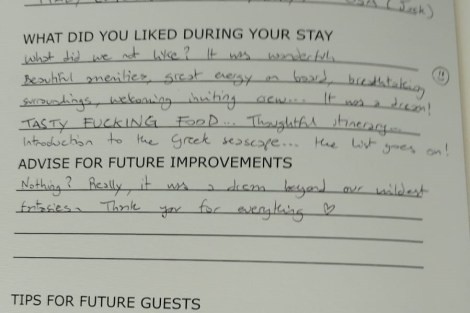 USA (Josh)
WHAT DID YOU LIKED DURING YOUR STAY
What did we not like? It was wonderful.
Beautiful amenities, great energy on board, breathtaking
surroundings, welcoming inviting crew... It was a dream!
TASTY FUCKING FOOD... Thoughtful itinerary...
Introduction to the Greek seascape... the list goes on!
ADVISE FOR FUTURE IMPROVEMENTS
Nothing? Really, it was a dream beyond our wildest
fntasies. Thank you for everything ♡
TIPS FOR FUTURE GUESTS